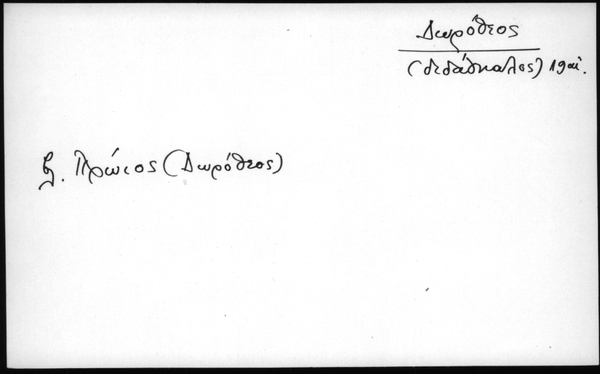 Δωρόθεος
(διδάσκαλος) 19ου αἰ.
βλ. Πρώιος (Δωρόθεος)